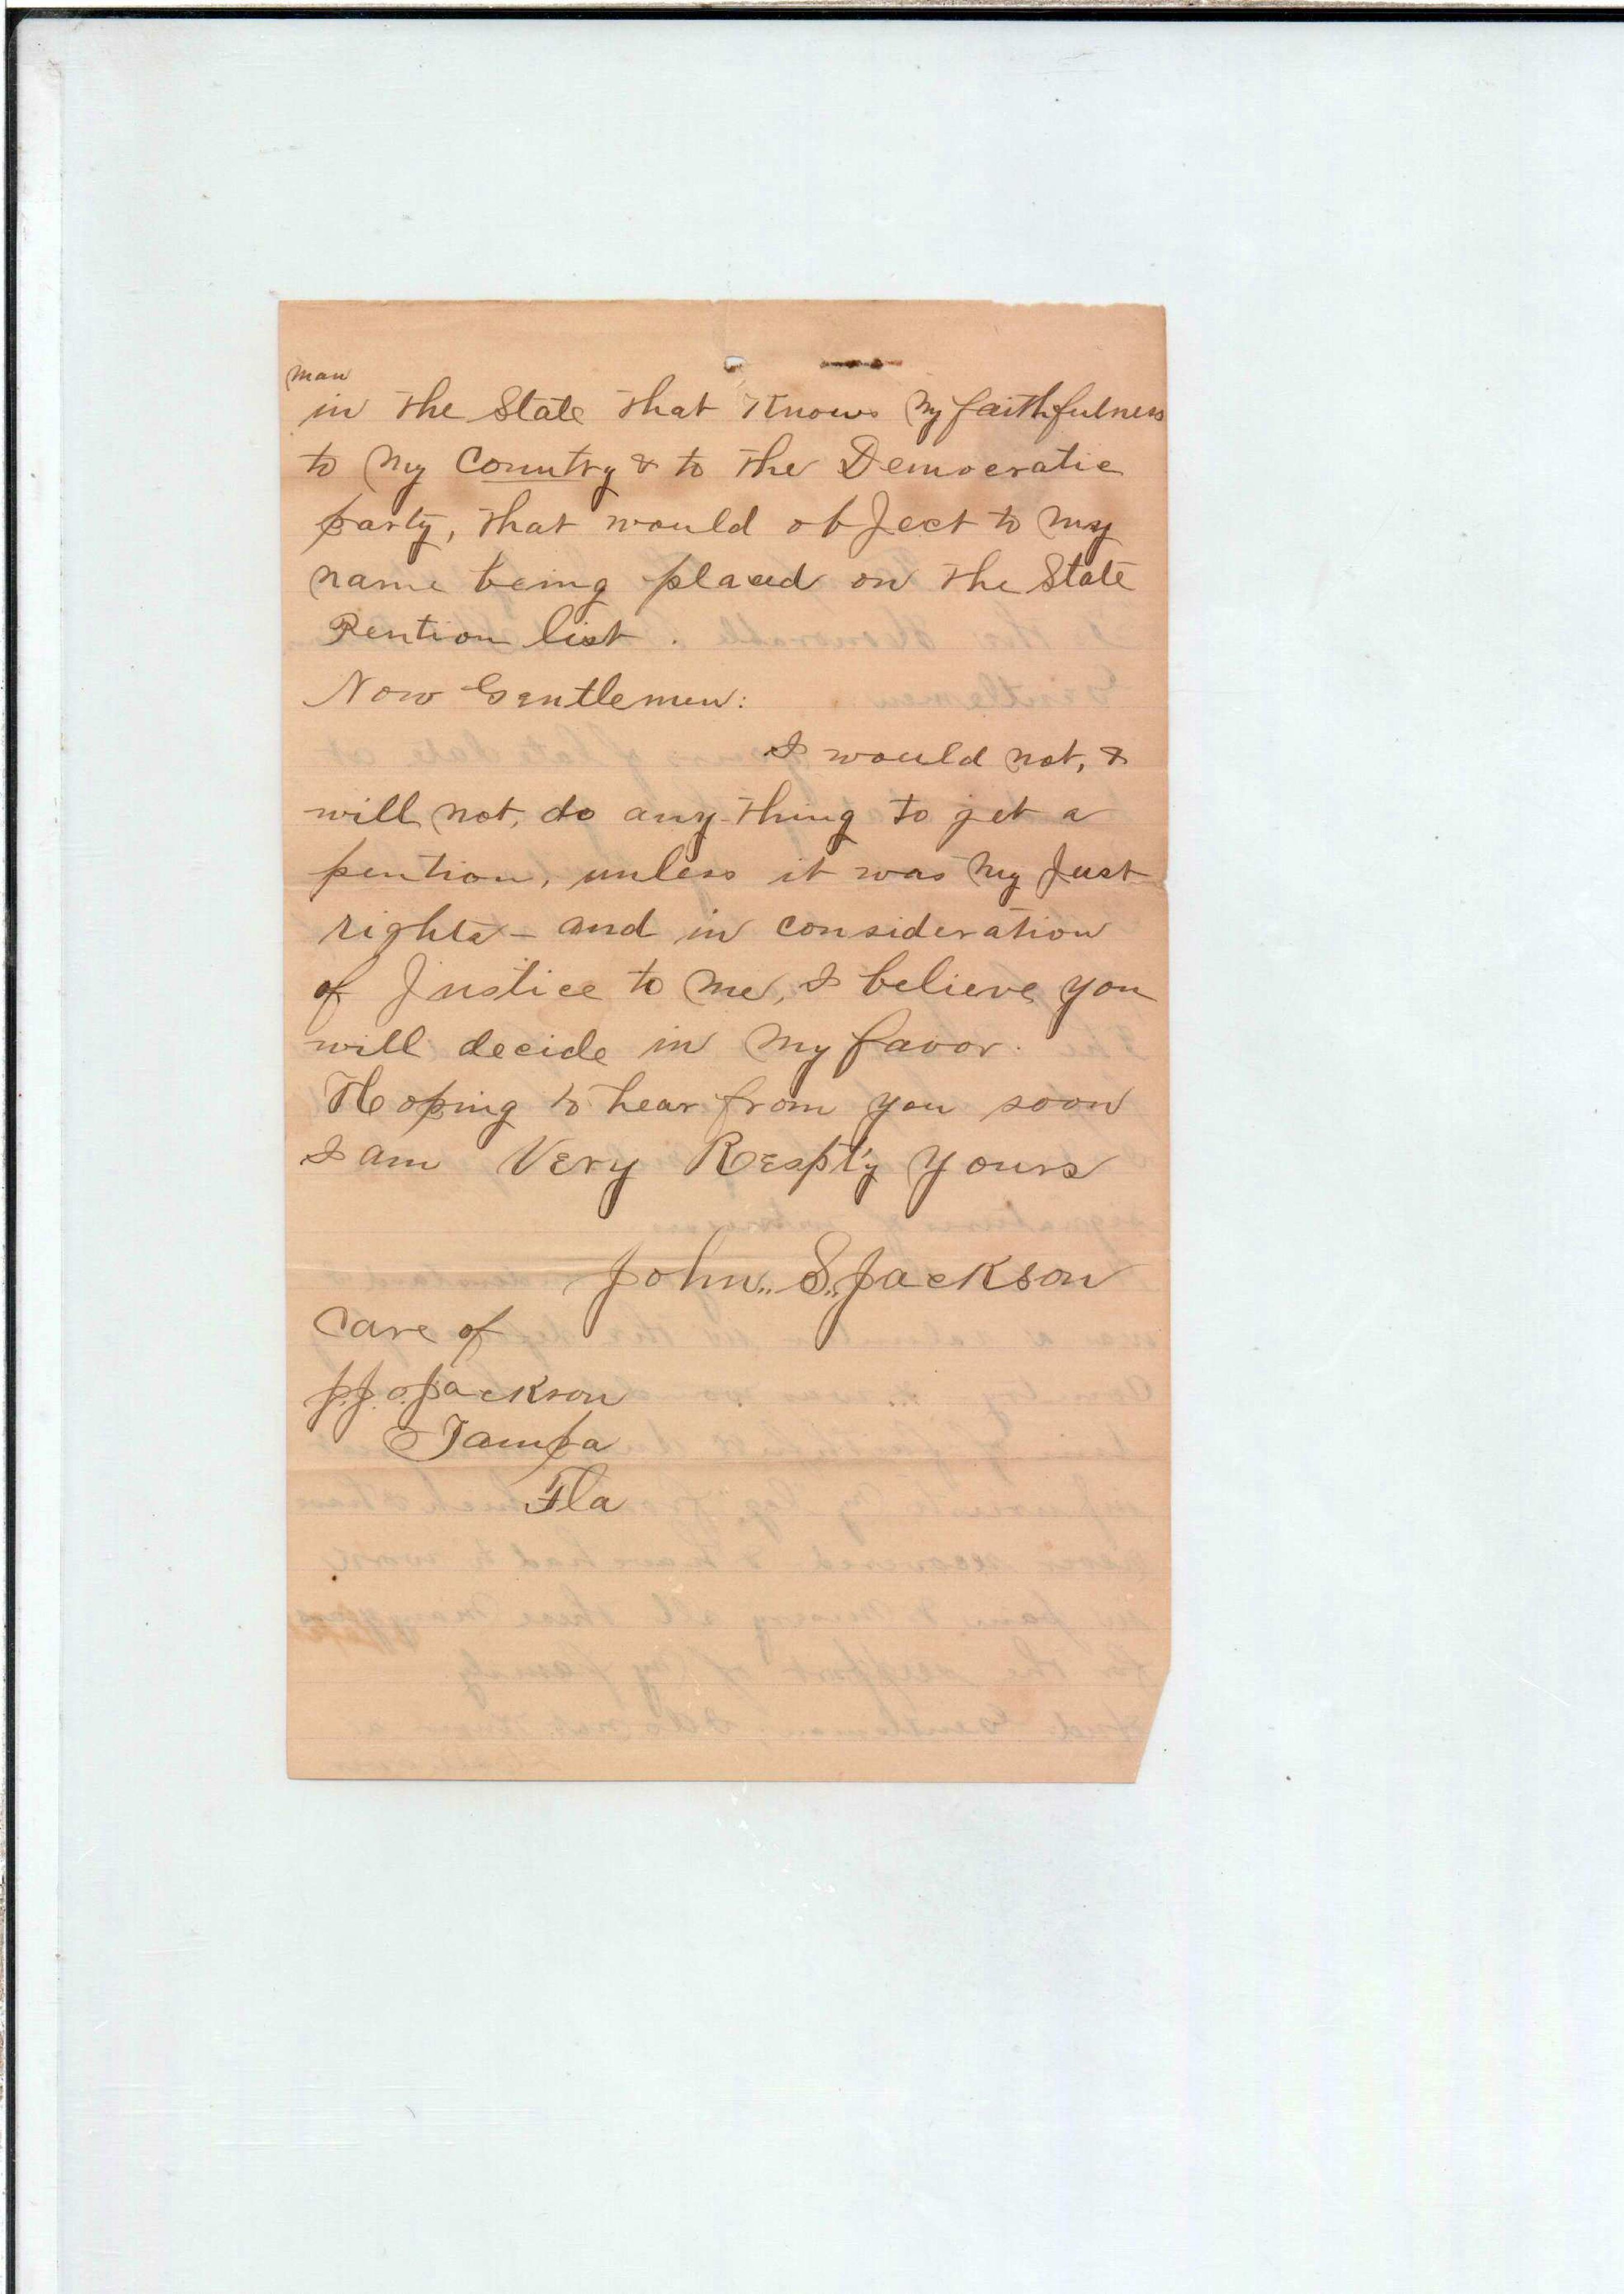 man
in the State that Knows My faithfulness
to My Country & to the Democratic
party, that would obJect to My
name being placed on the State
Pention list.
Now Gentlemen:
I would not, &
will not, do any-thing to get a
pention, unless it was My Just
rights - and in consideration
of Justice to Me, I believe you
will decide in My favor.
Hoping to hear from you soon
I am Very Resptʼy Yours
John.. S.. Jackson
Care of
Jackson
Tampa
Fla